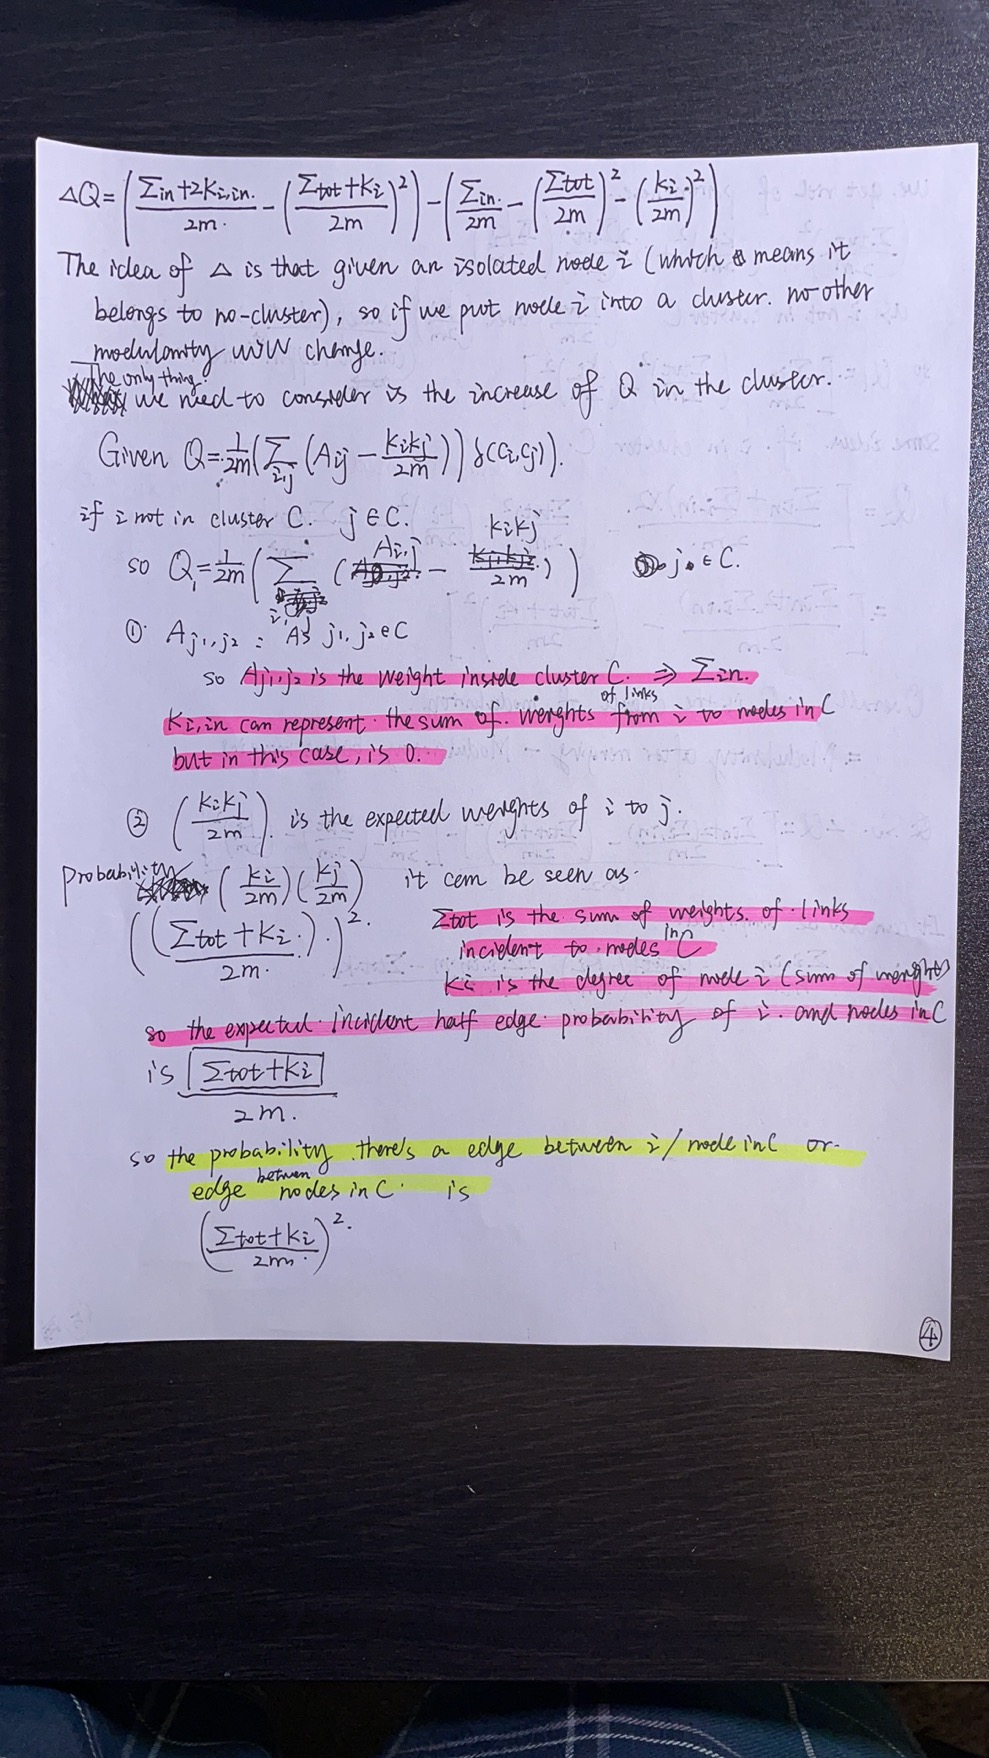 ΔQ = ( (Σin + 2Ki,in.)/2m. − ((Σtot + Ki)/2m)² ) − ( Σin./2m − (Σtot/2m)² − (ki/2m)² )
The idea of Δ is that given an isolated node i (which means it
belongs to no-cluster), so if we put node i into a cluster. no other
modularity will change.
The only thing.
we need to consider is the increase of Q in the cluster.
Given Q = 1/2m ( Σi,j (Aij − kikj/2m) ) δ(ci,cj).
if i not in cluster C. j ∈ C.
so Q1 = 1/2m ( Σi,j ( Ai,j − kikj/2m ) ) j ∈ C.
① Aj1,j2 : As j1, j2 ∈ C
so Aj1,j2 is the weight inside cluster C. ⇒ Σin.
Ki,in can represent the sum of weights of links from i to nodes in C
but in this case, is 0.
② (kikj/2m). is the expected weights of i to j.
Probability (ki/2m)(kj/2m) it can be seen as.
((Σtot + Ki.)/2m.)². Σtot is the sum of weights of links
incident to nodes in C
Ki is the degree of node i (sum of weights)
so the expected incident half edge probability of i and nodes in C
is [Σtot + Ki]/2m.
so the probability there's a edge between i/node in C or
edge between nodes in C is
((Σtot + Ki)/2m.)².
④